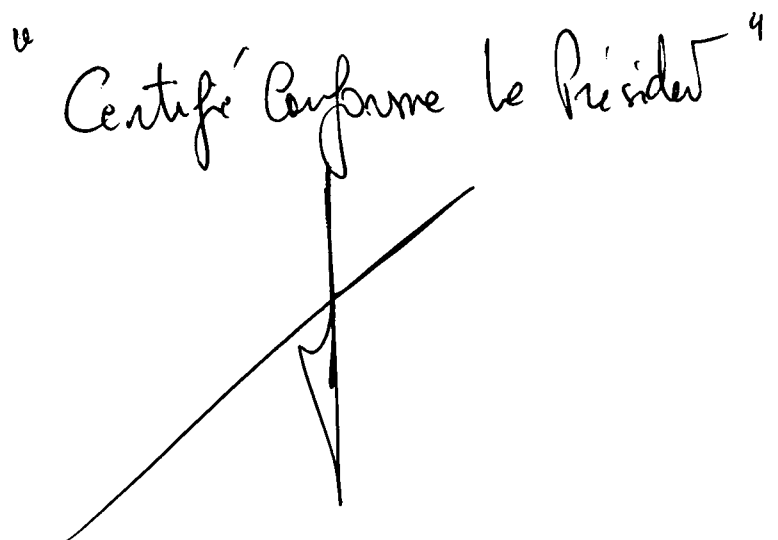 " Certifié Conforme le Président "